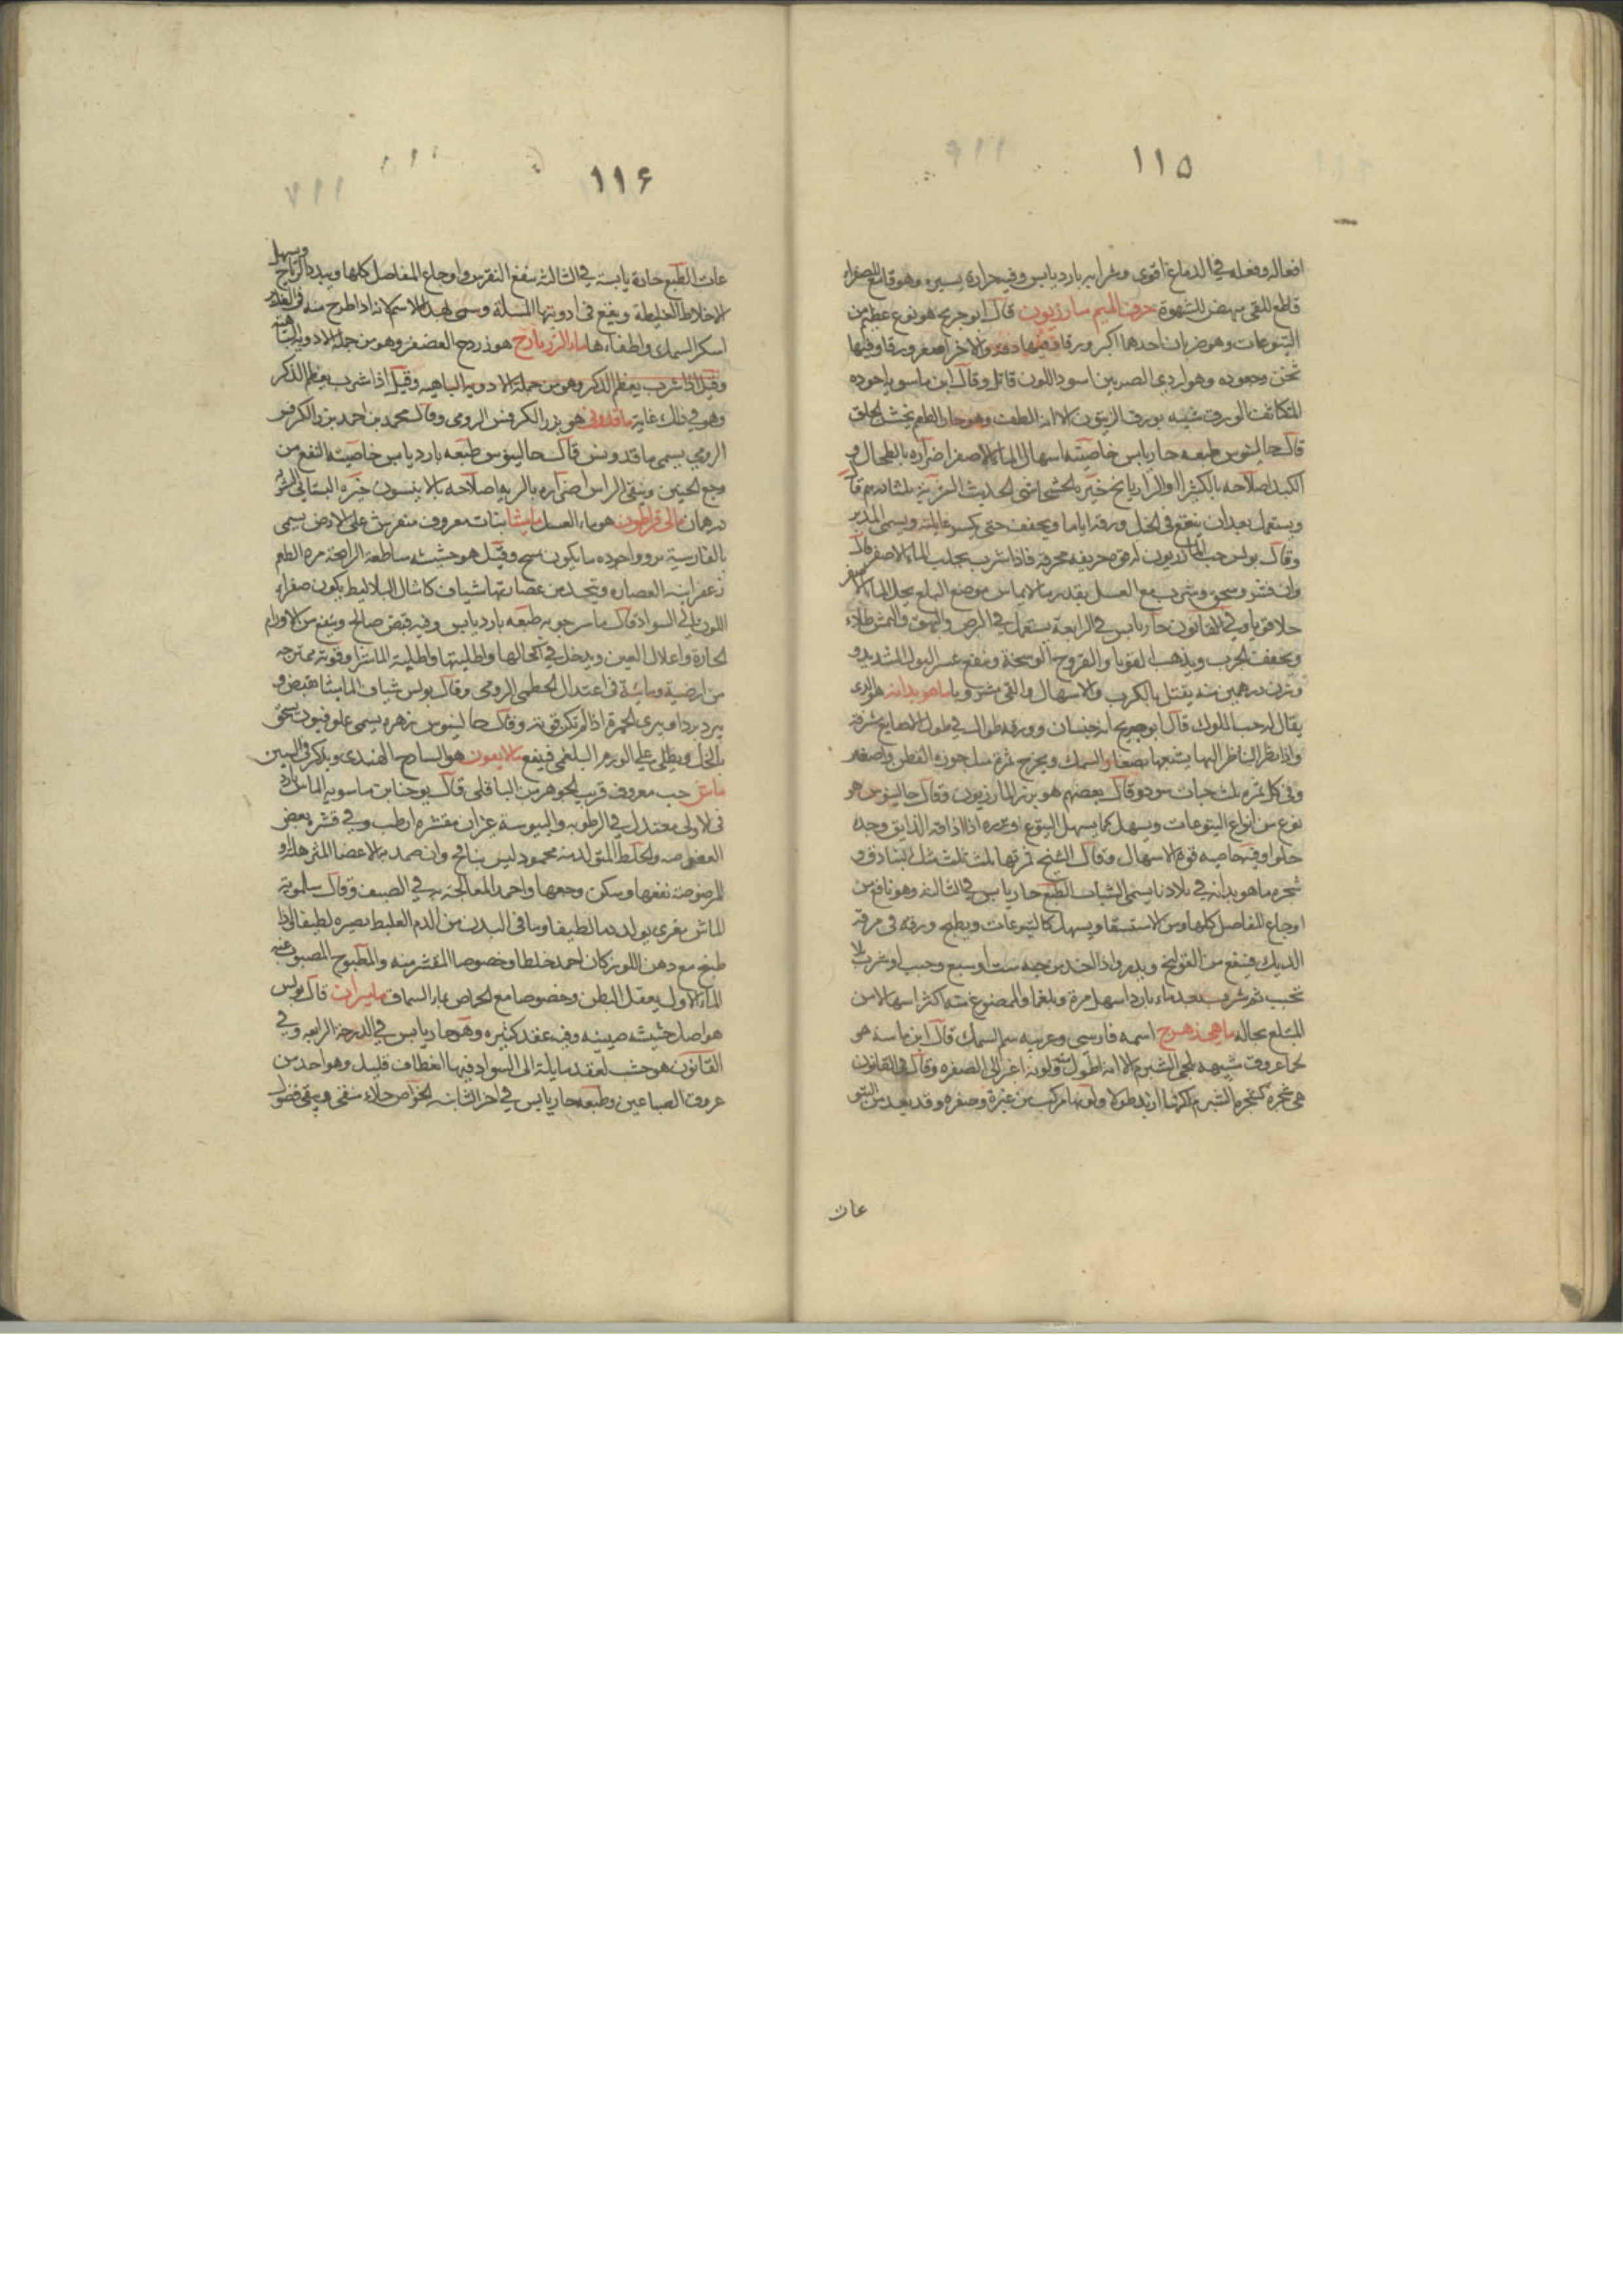 ١١۵
افعاله وفعله في الدماغ اقوى وشرابه بارد يابس وفيه حرارة يسيره وهو قامع للصفراء
قاطع للقى منهض للشهوة حرف الميم مازريون قال ابو جريج هو نوع عظيم من
اليتوعات وهو ضربان احدهما اكبر ورقا وفيها دقه والاخر اصغر ورقا وفيها
ثخن وجعوده وهو اردى الضربين اسود اللون قاتل وقال ابن ماسويه اجوده
المتكاثف الورق شبيه بورق الزيتون الا انه الطف وهو حار الطعم يخشن الحلق
قال جالينوس طبعه حار يابس خاصيته اسهال الما الاصفر اضراره بالطحال و
الكبد اصلاحه بالكثيرا والرازيانج خيره
ويستعمل بعد ان ينقع في الخل ورقه اياما ويجفف حتى يكسر غايلته ويسمى المدبر
وقال بولس حب المازريون له قوة حريفه محرقه فاذا شرب يجلب الماء الاصفر قال
وان قشر وسحق وشرب مع العسل بقدر ما لا يماس موضع البلع يحل الماء الاصفر
في القانون حار يابس في الرابعة يستعمل في البرص والبهق والنمش طلاء
ويجفف الجرب ويذهب القوبا والقروح الوسخة وينفع عسر البول الشديد و
وزن درهمين منه يقتل بالكرب والاسهال والقى ماهو بدانه هو الذى
يقال له حب الملوك قال ابو جريج له خبسان وورقه طوال في طول الاصابع
واذا نظر الناظر اليها يشبهها بصغار السمك ويخرج ثمرة مثل جوزه القطن واصغر
وفي كل ثمره ثلث حبات سود وقال بعضهم هو بزر المازريون وقال جالينوس هو
نوع من انواع اليتوعات ويسهل كما يسهل اليتوع وبزره اذا ذاقه الذايق وجده
حلوا وفيه خاصيه قوة الاسهال وقال الشيخ ثمرتها ثلث ثلث مثل البنادق و
شجره ماهو بدانه في بلادنا يسمى الشباب الطبع حار يابس في الثالثه وهو نافع من
اوجاع المفاصل كلها ومن الاستسقا ويسهل كاليتوعات ويطبخ ورقه في مرقه
الديك فينفع من القولنج واذا اخذ من حبه ست او سبع وحبب او
تحبب ثم شرب بعده ماء بارد اسهل مرة وبلغما والممضوغ منه اكثر اسهالا من
المبتلع بحاله ماهي زهرج اسمه فارسى وعربيه سم السمك قال ابن ماسه هو
لحا عروق شبيهه بلحى الشبرم الا انه اطول منه ولونه اغبر الى الصفره وقال في القانون
هي شجره كشجره الشبرم لكنها ازيد طولا ولونها مركب من غبرة وصفره وقد يعد من اليتو
عات
١١۶
عات الطبع حارة يابسة في الثالثه ينفع النقرس واوجاع المفاصل كلها ويبدد الرياح ويسهل
الاخلاط الغليظة ويقع في ادويتها المسهلة وسمى لهذا الاسم لانه اذا طرح منه في الغدير
اسكر السمك واطفاءها ماء الزردج هو زردج العصفر وهو من جملة الادويه الباهيه
وقيل اذا شرب يعظم الذكر وهو من جملة الادويه الباهيه وقيل اذا شرب يعظم الذكر
وهو في ذلك غاية ماقدونى هو بزر الكرفس الرومى وقال محمد بن احمد بزر الكرفس
الرومي يسمى ماقدونس قال جالينوس طبعه بارد يابس خاصيته النفع من
وجع الجنين وينقى الراس اضراره بالريه اصلاحه بالانيسون خيره البستاني الشربة
درهمان مالي قراطون هو ماء العسل ماميثا نبات معروف متفرش على الارض يسمى
بالفارسية واجوده ما يكون وقيل هو حشيشه ساطعة الرايحة مرة الطعم
زعفرانيه العصاره ويتخذ من عصارتها شياف كاشال البلاليط يكون صفراء
اللون الى السواد قال ماسرجويه طبعه بارد يابس وفيه قبض صالح وينفع من الاورام
الحارة واعلال العين ويدخل في اكحالها واطليتها واطلية الماشرا وقوته ممتزجه
من ارضية ومائية في اعتدال الخطمى الرومى وقال بولس شياف الماميثا يقبض و
يبرد بردا ويبرى الحمرة اذا لم تكن قوية وقال جالينوس زهره يسمى يسحق
بالخل ويطلى على الورم البلغمى فينفع مالابعون هو الساذج الهندى ويذكر في السين
ماش حب معروف قريب الجوهر من الباقلي قال يوحنا بن ماسويه الماش بارد
في الاولى معتدل في الرطوبه واليبوسة غير ان مقشره ارطب وفي قشره بعض
العفوصه والخلط المتولد منه محمود ليس بنافخ وان ضمد به الاعضا
المرضوضة نفعها وسكن وجعها واحمد المعالجة به في الصيف وقال سلمويه
الماش مغرى يولد دما لطيفا وما في البدن من الدم الغليظ يصيره لطيفا واذا
طبخ مع دهن اللوز كان احمد خلطا وخصوصا المقشر منه والمطبوخ المصبوب عنه
الماء الاول يعقل البطن وخصوصا مع الحماض بماء السماق ماميران قال بولس
هو اصل حشيشه صينيه وفيه عقد كثيره وهو حار يابس في الدرجة الرابعه وفي
القانون هو خشب لعقد مايلة الى السواد فيها انعطاف قليل وهو احد من
عروق الصباغين وطبعه حار يابس في اخر الثانيه الخواص جلاء منقى وينقى فضول